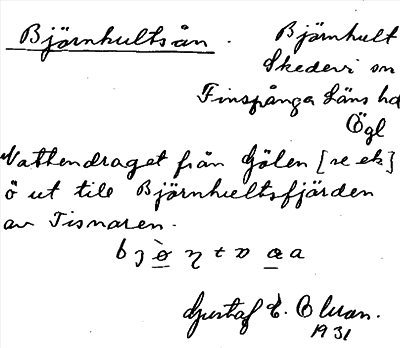 Björnhultsån. Björnhult
Skedevi sn
Finspånga Läns hd
Ögl
Vattendraget från Gölen [se ek]
ö ut till Björnhultsfjärden
av Tisnaren.
Gustaf E.
1931